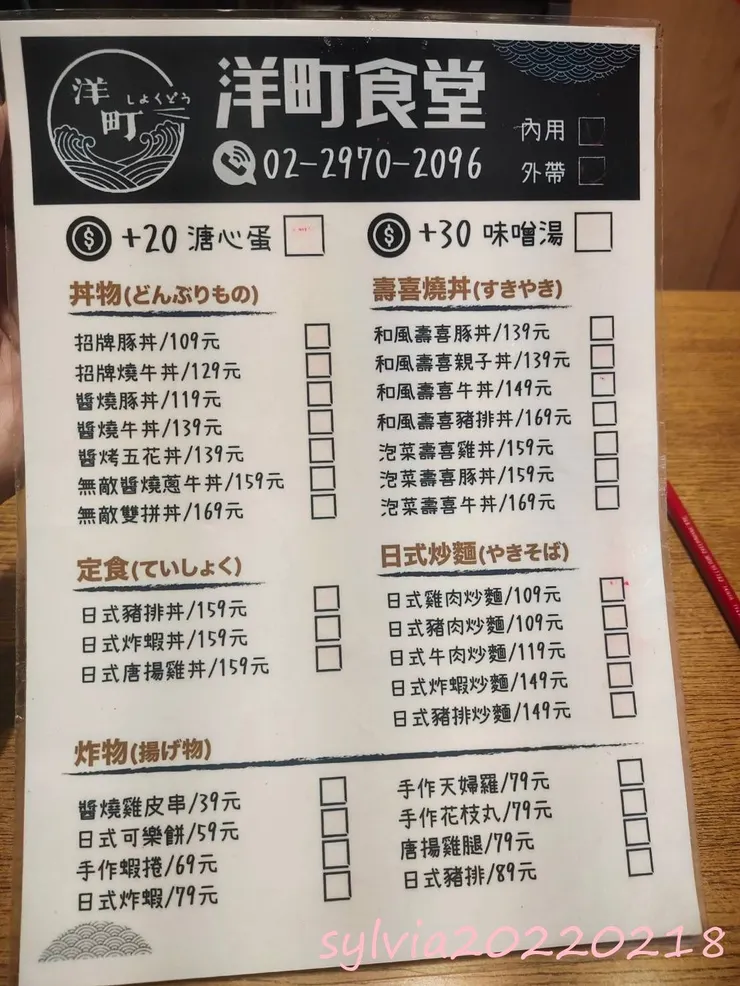 洋町
しょくどう
洋町食堂
02-2970-2096
內用
外帶
+20 溏心蛋
+30 味噌湯
丼物(どんぶりもの)
招牌豚丼/109元
招牌燒牛丼/129元
醬燒豚丼/119元
醬燒牛丼/139元
醬烤五花丼/139元
無敵醬燒蔥牛丼/159元
無敵雙拼丼/169元
壽喜燒丼(すきやき)
和風壽喜豚丼/139元
和風壽喜親子丼/139元
和風壽喜牛丼/149元
和風壽喜豬排丼/169元
泡菜壽喜雞丼/159元
泡菜壽喜豚丼/159元
泡菜壽喜牛丼/169元
定食(ていしょく)
日式豬排丼/159元
日式炸蝦丼/159元
日式唐揚雞丼/159元
日式炒麵(やきそば)
日式雞肉炒麵/109元
日式豬肉炒麵/109元
日式牛肉炒麵/119元
日式炸蝦炒麵/149元
日式豬排炒麵/149元
炸物(揚げ物)
醬燒雞皮串/39元
日式可樂餅/59元
手作蝦捲/69元
日式炸蝦/79元
手作天婦羅/79元
手作花枝丸/79元
唐揚雞腿/79元
日式豬排/89元
sylvia20220218